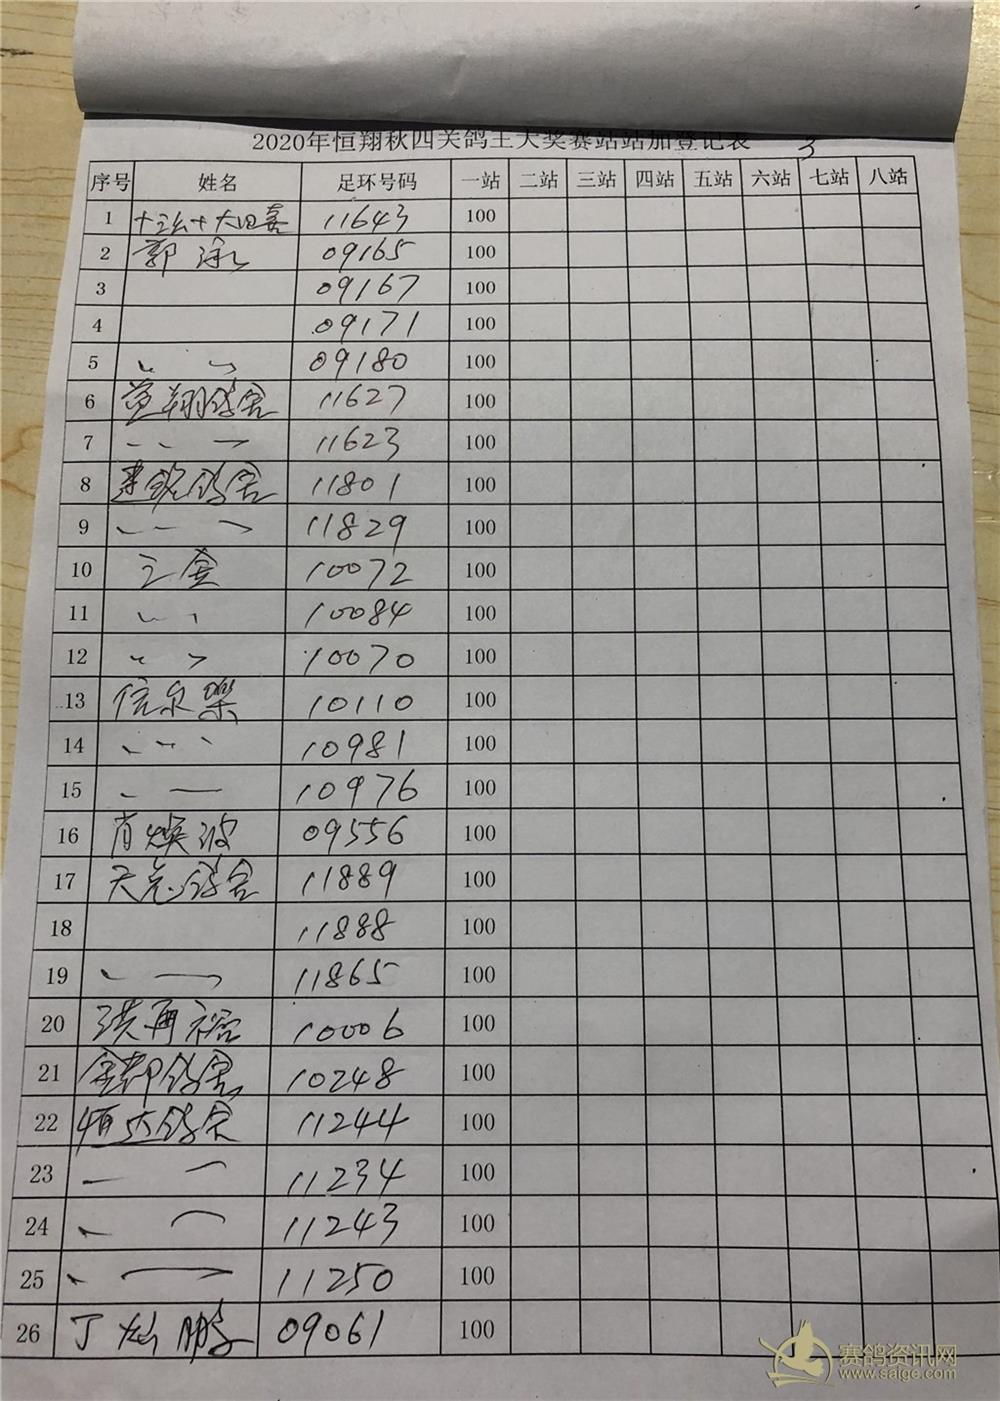 2020年恒翔秋四关鸽王大奖赛站站加登记表 3
序号 姓名 足环号码 一站 二站 三站 四站 五站 六站 七站 八站
1 十大四喜 11643 100
2 郭泳 09165 100
3 09167 100
4 09171 100
5 〃 〃 09180 100
6 翔鸽舍 11627 100
7 〃 〃 11623 100
8 建铭鸽舍 11801 100
9 〃 〃 11829 100
10 三金 10072 100
11 〃 〃 10084 100
12 〃 〃 10070 100
13 信永乐 10110 100
14 〃 〃 10981 100
15 〃 10976 100
16 肖焕波 09556 100
17 天龙鸽舍 11889 100
18 11888 100
19 〃 11865 100
20 洪再裕 10006 100
21 金都鸽舍 10248 100
22 恒达鸽舍 11244 100
23 〃 11234 100
24 〃 11243 100
25 〃 11250 100
26 丁灿鹏 09061 100
赛鸽资讯网
www.saige.com